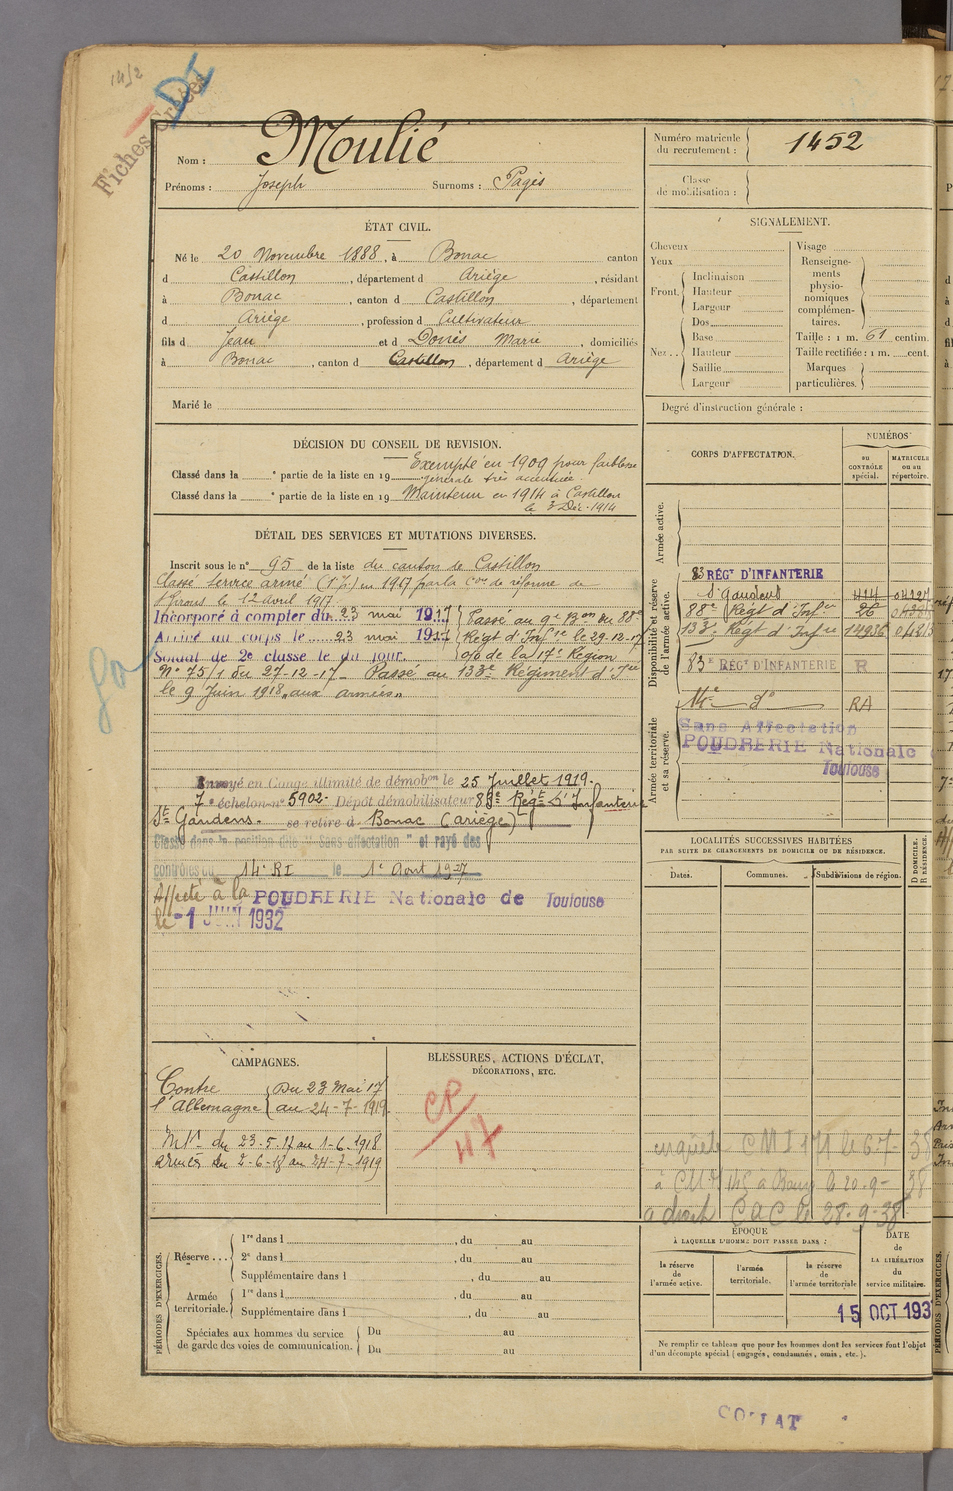 1452
Fiches Créées
DI
Nom : Moulié
Prénoms : Joseph Surnoms : Pagès
Numéro matricule du recrutement : 1452
Classe de mobilisation :
ÉTAT CIVIL.
Né le 20 Novembre 1888, à Bonac canton
d Castillon, département d Ariège, résidant
à Bonac, canton d Castillon, département
d Ariège, profession d Cultivateur
fils d Jean et d Donès Marie, domiciliés
à Bonac, canton d Castillon, département d Ariège
Marié le
SIGNALEMENT.
Cheveux
Yeux
Front. Inclinaison
Hauteur
Largeur
Nez.. Dos
Base
Hauteur
Saillie
Largeur
Visage
Renseignements physionomiques complémentaires.
Taille : 1 m. 61 centim.
Taille rectifiée : 1 m. cent.
Marques particulières.
Degré d'instruction générale :
DÉCISION DU CONSEIL DE REVISION.
Classé dans la e partie de la liste en 19 Exempté en 1909 pour faiblesse
générale très accentuée
Classé dans la e partie de la liste en 19 Maintenu en 1914 à Castillon
le 3 Déc. 1914
DÉTAIL DES SERVICES ET MUTATIONS DIVERSES.
Inscrit sous le n° 95 de la liste du canton de Castillon
Classé service armé (1.P.) en 1917 par la Con de réforme de
St Girons le 12 Avril 1917
Incorporé à compter du 23 mai 1917 Passé au 9e Bon du 88e
Arrivé au corps le 23 mai 1917 Régt d'Infrie le 29-12-17
Soldat de 2e classe le du jour. o/o de la 17e Région
N° 75/1 du 27-12-17 - Passé au 133e Régiment d'Irie
le 9 Juin 1918 "aux armées"
Envoyé en Congé illimité de démobon le 25 Juillet 1919.
7e échelon n° 5902. Dépôt démobilisateur 83e Régt d'Infanterie
St Gaudens. se retire à Bonac (Ariège)
Classé dans la position dite "Sans affectation" et rayé des
contrôles du 14e RI le 1e Août 1927
Affecté à la POUDRERIE Nationale de Toulouse
le -1 JUIN 1932
CORPS D'AFFECTATION.
NUMÉROS
au CONTRÔLE spécial.
MATRICULE ou au répertoire.
Armée active.
Disponibilité et réserve de l'armée active.
83 RÉGt D'INFANTERIE
St Gaudens 414
88e Régt d'Infrie 26
133e Régt d'Infrie 14936
83e RÉGt D'INFANTERIE R
14e do RA
Armée territoriale et sa réserve.
Sans Affectation
POUDRERIE Nationale
Toulouse
LOCALITÉS SUCCESSIVES HABITÉES
PAR SUITE DE CHANGEMENTS DE DOMICILE OU DE RÉSIDENCE.
Dates. Communes. Subdivisions de région.
D DOMICILE. R RÉSIDENCE.
CAMPAGNES.
Contre l'Allemagne Du 23 Mai 17
au 24-7-1919
Intr du 23-5-17 au 1-6-1918
Armées du 2-6-18 au 24-7-1919
BLESSURES, ACTIONS D'ÉCLAT,
DÉCORATIONS, ETC.
CP/47
enquête CMI 171 le 6-7-38
à 20-9-38
a droit CAC le 28-9-38
PÉRIODES D'EXERCICES.
Réserve... 1re dans l , du au
2e dans l , du au
Supplémentaire dans l , du au
Armée territoriale. 1re dans l , du au
Supplémentaire dans l , du au
Spéciales aux hommes du service de garde des voies de communication. Du au
Du au
ÉPOQUE
À LAQUELLE L'HOMME DOIT PASSER DANS :
la réserve de l'armée active.
l'armée territoriale.
la réserve de l'armée territoriale
DATE de LA LIBÉRATION du service militaire.
15 OCT 193
Ne remplir ce tableau que pour les hommes dont les services font l'objet
d'un décompte spécial (engagés, condamnés, omis, etc.).